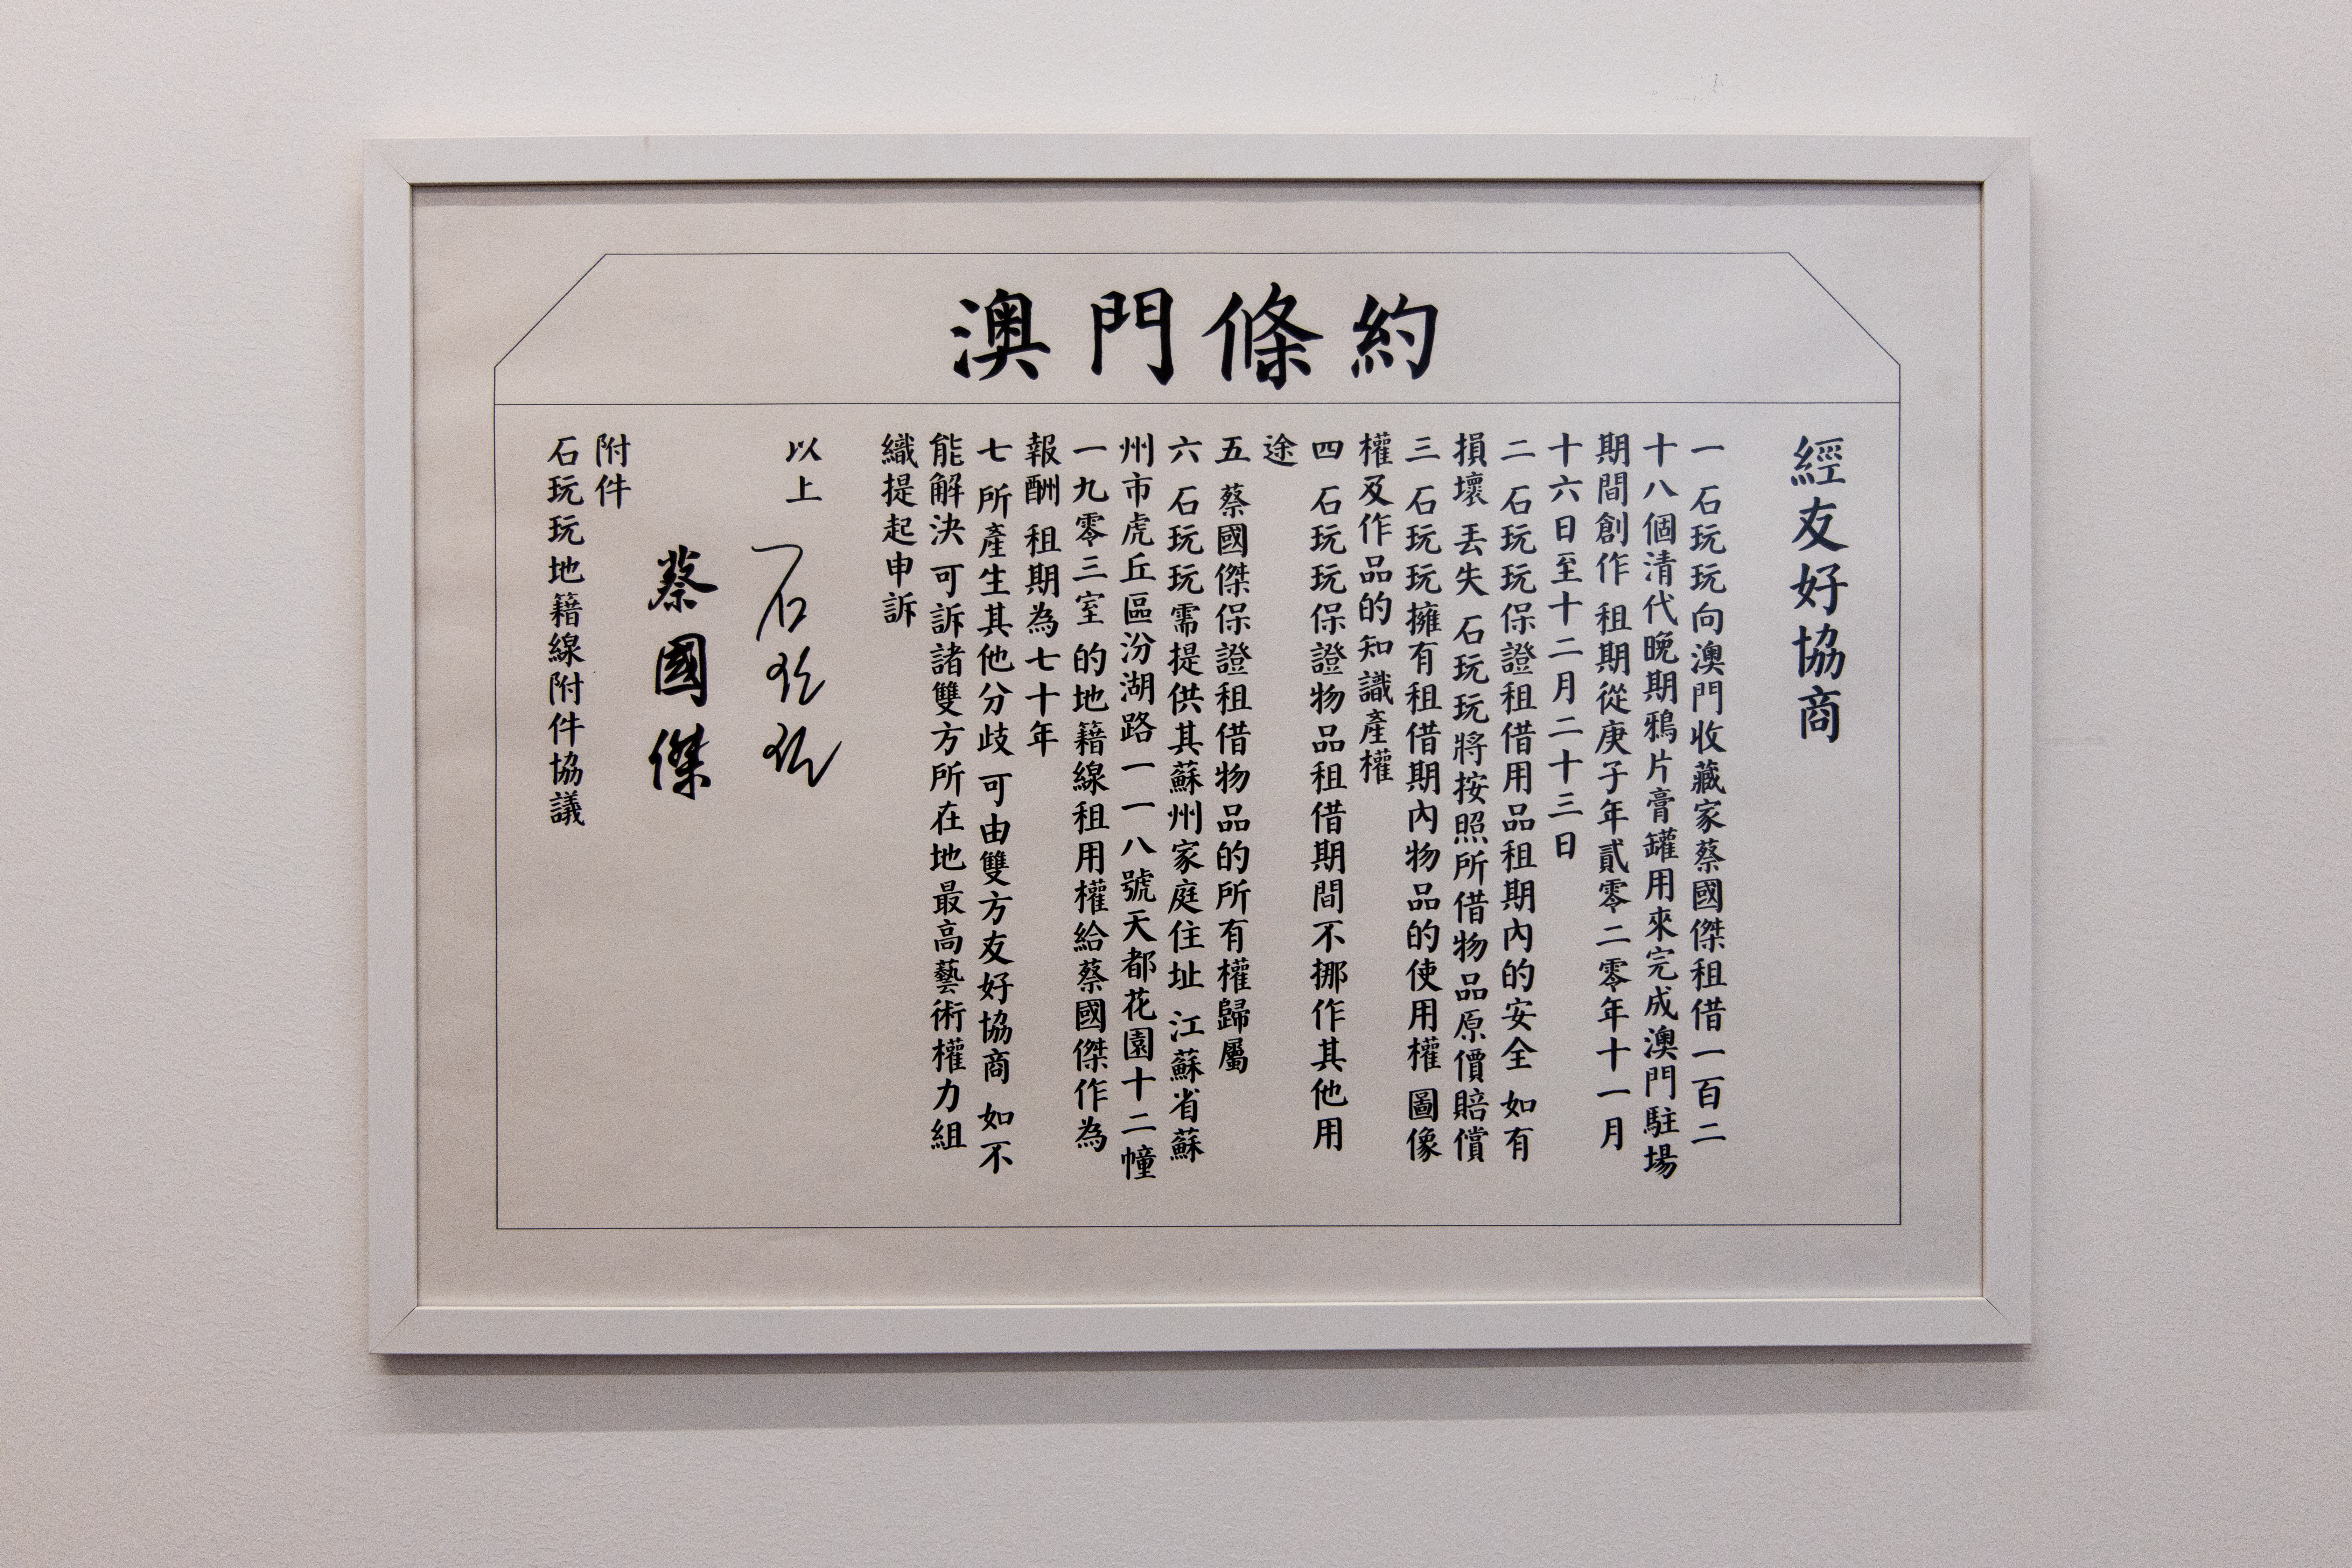 澳門條約
經友好協商
一 石玩玩向澳門收藏家蔡國傑租借一百二
十八個清代晚期鴉片膏罐用來完成澳門駐場
期間創作 租期從庚子年貳零二零年十一月
十六日至十二月二十三日
二 石玩玩保證租借用品租期內的安全 如有
損壞 丟失 石玩玩將按照所借物品原價賠償
三 石玩玩擁有租借期內物品的使用權 圖像
權及作品的知識產權
四 石玩玩保證物品租借期間不挪作其他用
途
五 蔡國傑保證租借物品的所有權歸屬
六 石玩玩需提供其蘇州家庭住址 江蘇省蘇
州市虎丘區汾湖路一一一八號天都花園十二幢
一九零三室 的地籍線租用權給蔡國傑作為
報酬 租期為七十年
七 所產生其他分歧 可由雙方友好協商 如不
能解決 可訴諸雙方所在地最高藝術權力組
織提起申訴
以上
石玩玩
蔡國傑
附件
石玩玩地籍線附件協議